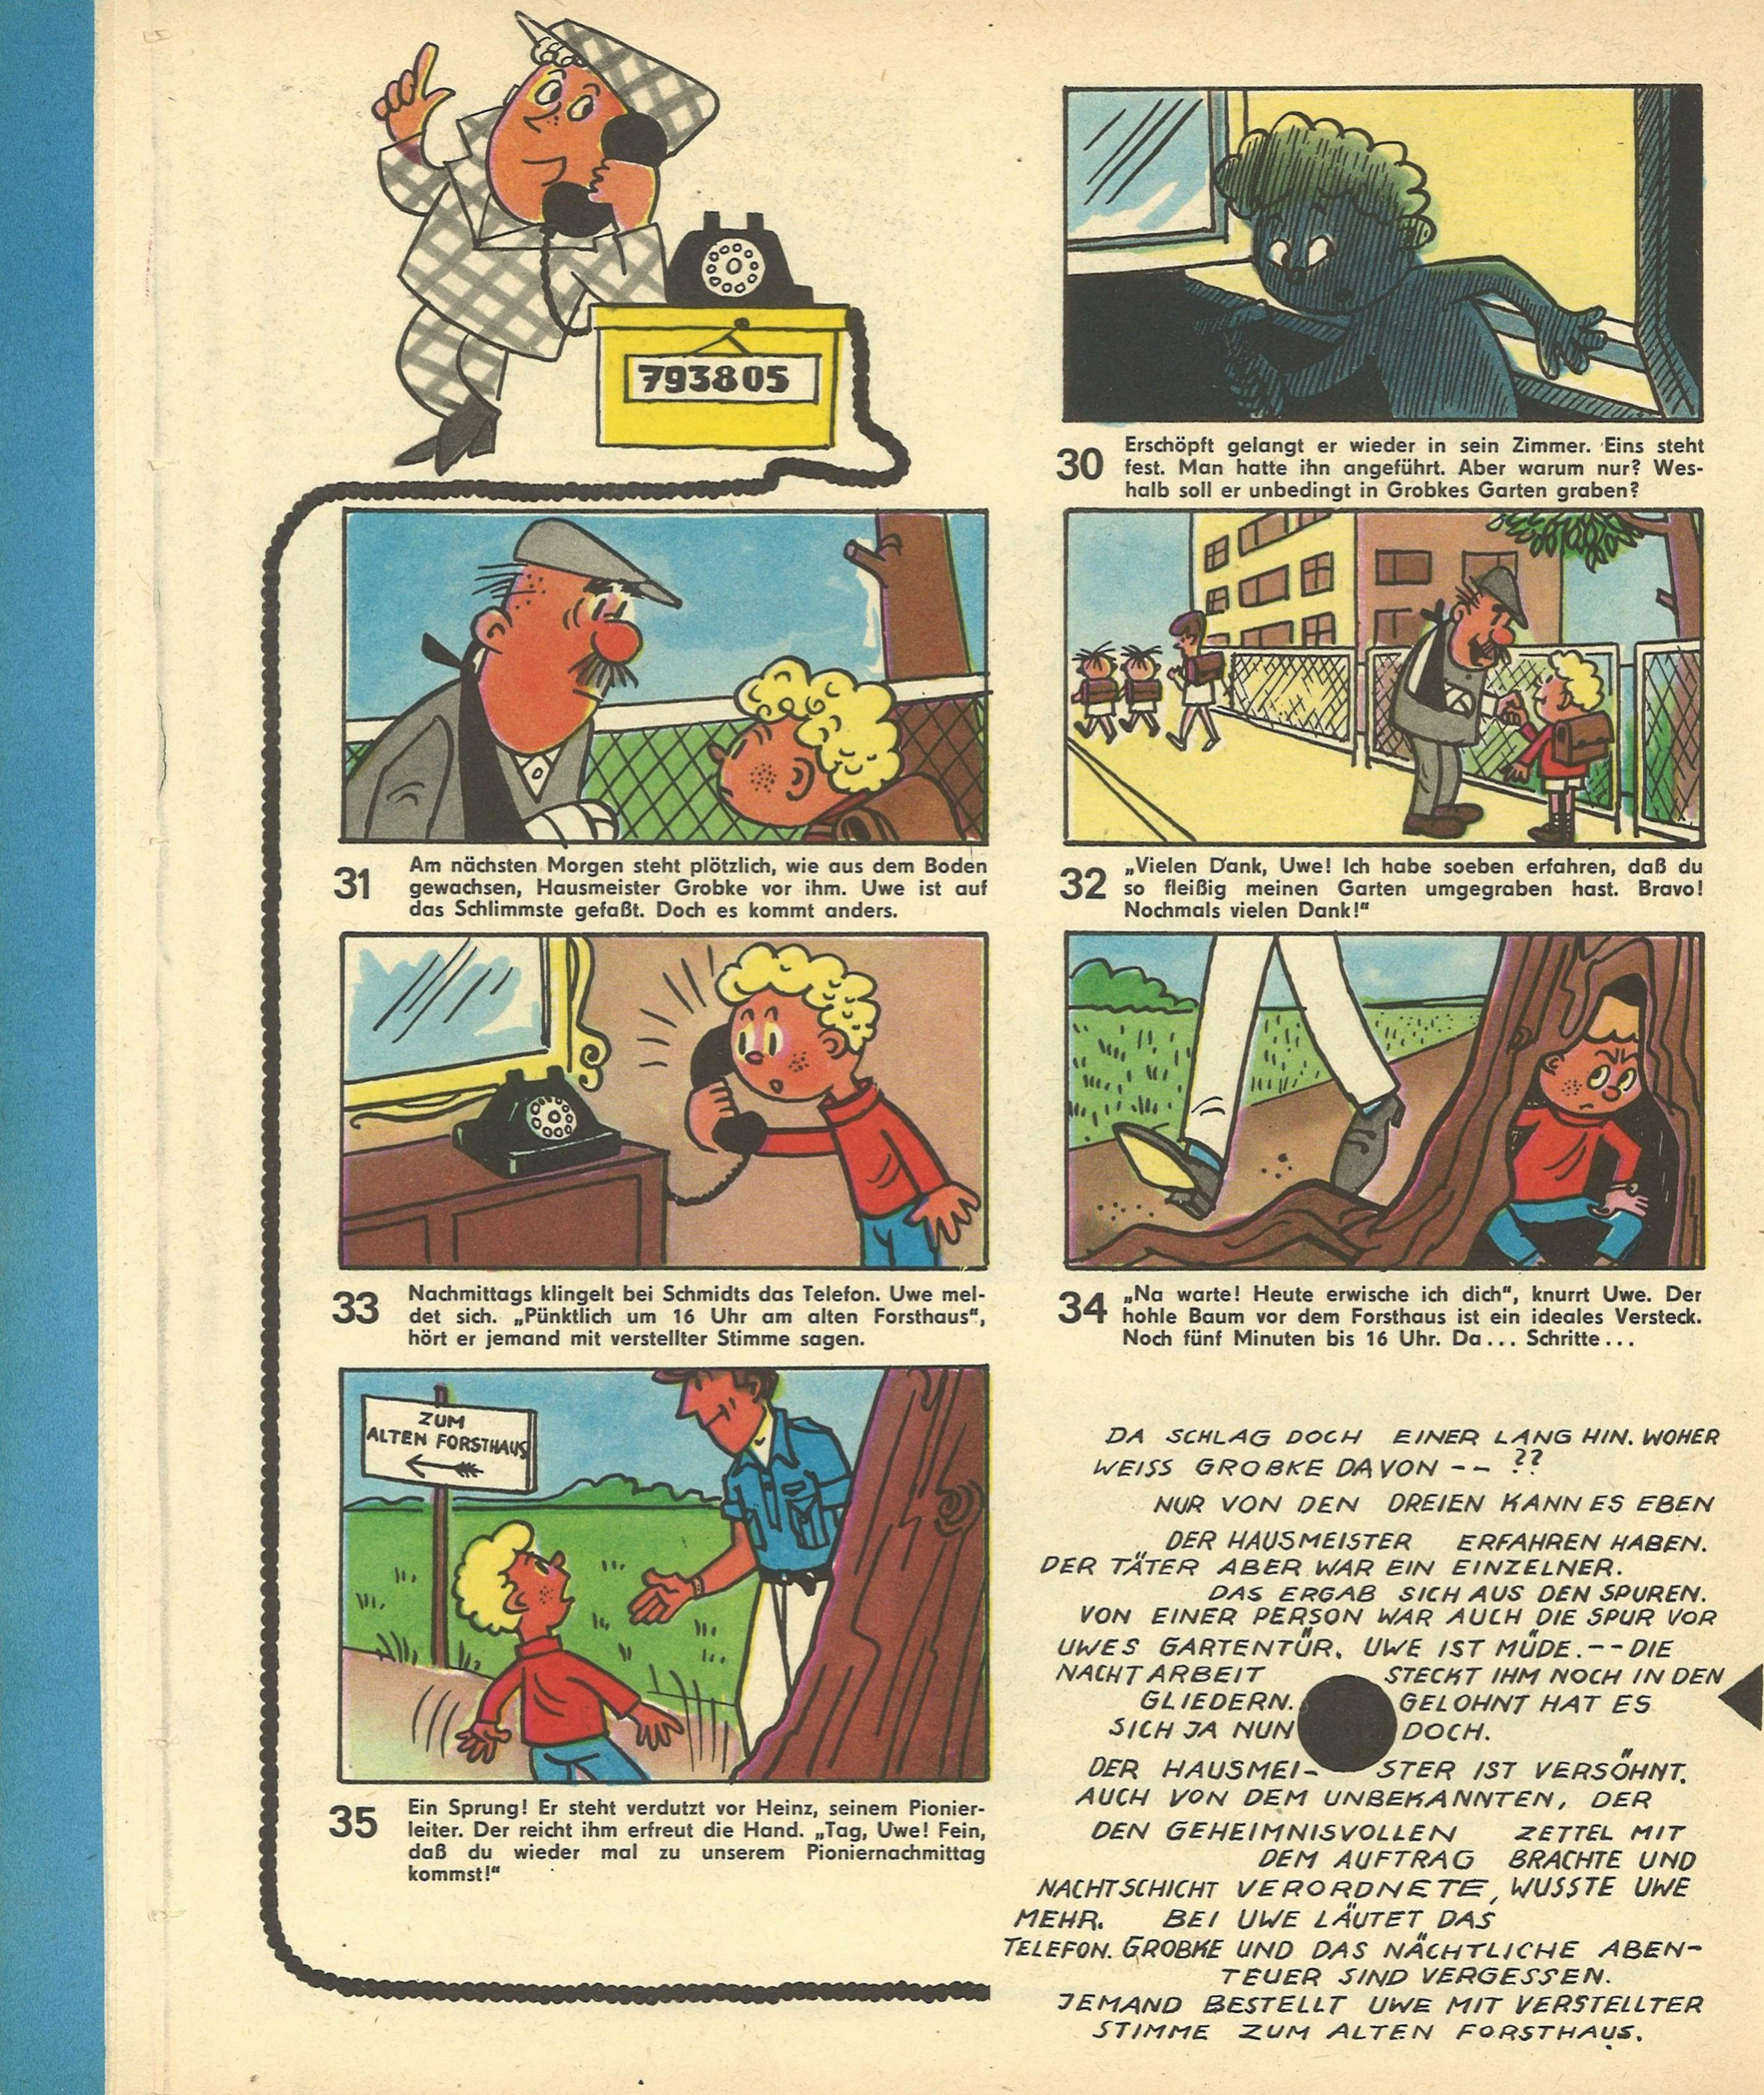 793805
30
Erschöpft gelangt er wieder in sein Zimmer. Eins steht
fest. Man hatte ihn angeführt. Aber warum nur? Wes-
halb soll er unbedingt in Grobkes Garten graben?
31
Am nächsten Morgen steht plötzlich, wie aus dem Boden
gewachsen, Hausmeister Grobke vor ihm. Uwe ist auf
das Schlimmste gefaßt. Doch es kommt anders.
32
„Vielen Dank, Uwe! Ich habe soeben erfahren, daß du
so fleißig meinen Garten umgegraben hast. Bravo!
Nochmals vielen Dank!“
33
Nachmittags klingelt bei Schmidts das Telefon. Uwe mel-
det sich. „Pünktlich um 16 Uhr am alten Forsthaus“,
hört er jemand mit verstellter Stimme sagen.
34
„Na warte! Heute erwische ich dich“, knurrt Uwe. Der
hohle Baum vor dem Forsthaus ist ein ideales Versteck.
Noch fünf Minuten bis 16 Uhr. Da... Schritte...
ZUM
ALTEN FORSTHAUS
35
Ein Sprung! Er steht verdutzt vor Heinz, seinem Pionier-
leiter. Der reicht ihm erfreut die Hand. „Tag, Uwe! Fein,
daß du wieder mal zu unserem Pioniernachmittag
kommst!“
DA SCHLAG DOCH EINER LANG HIN. WOHER
WEISS GROBKE DAVON -- ??
NUR VON DEN DREIEN KANN ES EBEN
DER HAUSMEISTER ERFAHREN HABEN.
DER TÄTER ABER WAR EIN EINZELNER.
DAS ERGAB SICH AUS DEN SPUREN.
VON EINER PERSON WAR AUCH DIE SPUR VOR
UWES GARTENTÜR. UWE IST MÜDE.-- DIE
NACHTARBEIT STECKT IHM NOCH IN DEN
GLIEDERN. GELOHNT HAT ES
SICH JA NUN DOCH.
DER HAUSMEI-STER IST VERSÖHNT.
AUCH VON DEM UNBEKANNTEN, DER
DEN GEHEIMNISVOLLEN ZETTEL MIT
DEM AUFTRAG BRACHTE UND
NACHTSCHICHT VERORDNETE, WUSSTE UWE
MEHR. BEI UWE LÄUTET DAS
TELEFON. GROBKE UND DAS NÄCHTLICHE ABEN-
TEUER SIND VERGESSEN.
JEMAND BESTELLT UWE MIT VERSTELLTER
STIMME ZUM ALTEN FORSTHAUS.